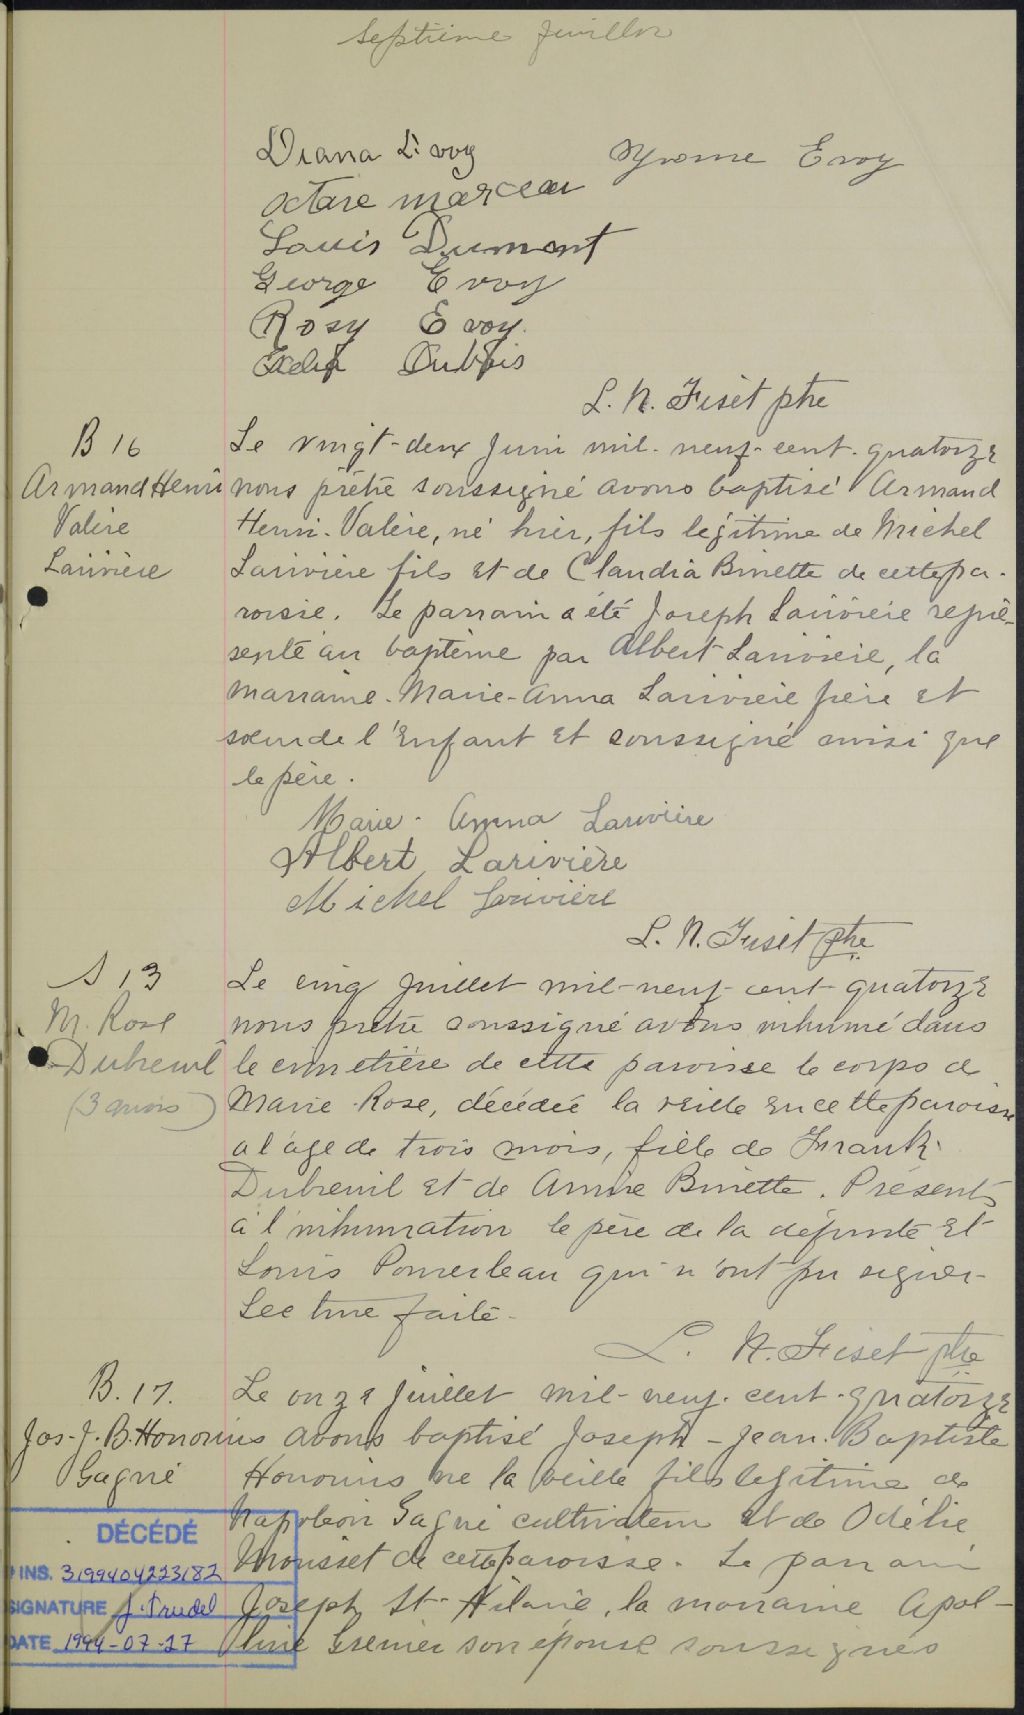 Septième feuillet
Diana Evoy Yvonne Evoy
octave marceau
Louis Dumont
George Evoy
Rosy Evoy.
Dubois
L. N. Fiset ptre
B 16
Armand Henri
Valère
Larivière
Le vingt-deux Juin mil-neuf-cent-quatorze
nous prêtre soussigné avons baptisé Armand
Henri-Valère, né hier, fils légitime de Michel
Larivière fils et de Claudia Binette de cette pa-
roisse. Le parrain a été Joseph Larivière repré-
senté au baptême par Albert Larivière, la
marraine Marie-Anna Larivière frère et
soeur de l'enfant et soussigné ainsi que
le père.
Marie-Anna Larivière
Albert Larivière
Michel Larivière
L. N. Fiset ptre
S 13
M. Rose
Dubreuil
(3 mois)
Le cinq Juillet mil-neuf-cent quatorze
nous prêtre soussigné avons inhumé dans
le cimetière de cette paroisse le corps de
Marie-Rose, décédée la veille en cette paroisse
a l'âge de trois mois, fille de Frank
Dubreuil et de Annie Binette. Présents
à l'inhumation le père de la défunte et
Louis Pomerleau qui n'ont pu signer
Lecture faite.
L. N. Fiset ptre
B. 17.
Jos-J. B. Honorius
Gagné
Le onze Juillet mil-neuf-cent-quatorze
avons baptisé Joseph-Jean-Baptiste
Honorius né la veille fils légitime de
Napoléon Gagné cultivateur et de Odélie
Mousset de cette paroisse. Le parrain
Joseph St-Hilaire, la marraine Apol-
line Grenier son épouse soussignés
DÉCÉDÉ
INS. 3199404223182
SIGNATURE J. Trudel
DATE 1994-07-27